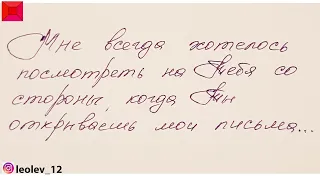 Мне всегда хотелось
посмотреть на Тебя со
стороны, когда Ты
открываешь мои письма...
leolev_12